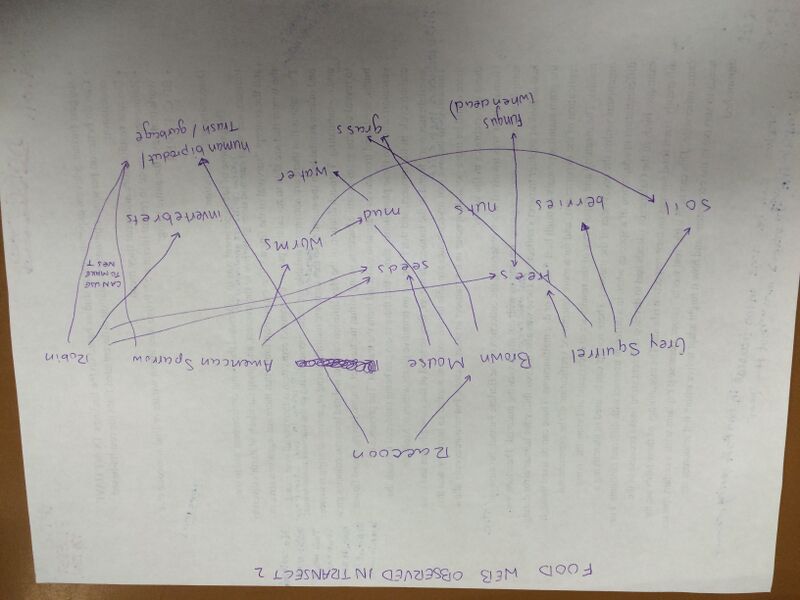 FOOD WEB OBSERVED IN TRANSECT 2
Raccoon
Grey Squirrel
Brown Mouse
American Sparrow
Robin
trees
seeds
worms
CAN USE
TO MAKE
NEST
soil
berries
nuts
mud
invertebrets
water
human biproduct/
Trash/garbage
fungus
(when dead)
grass